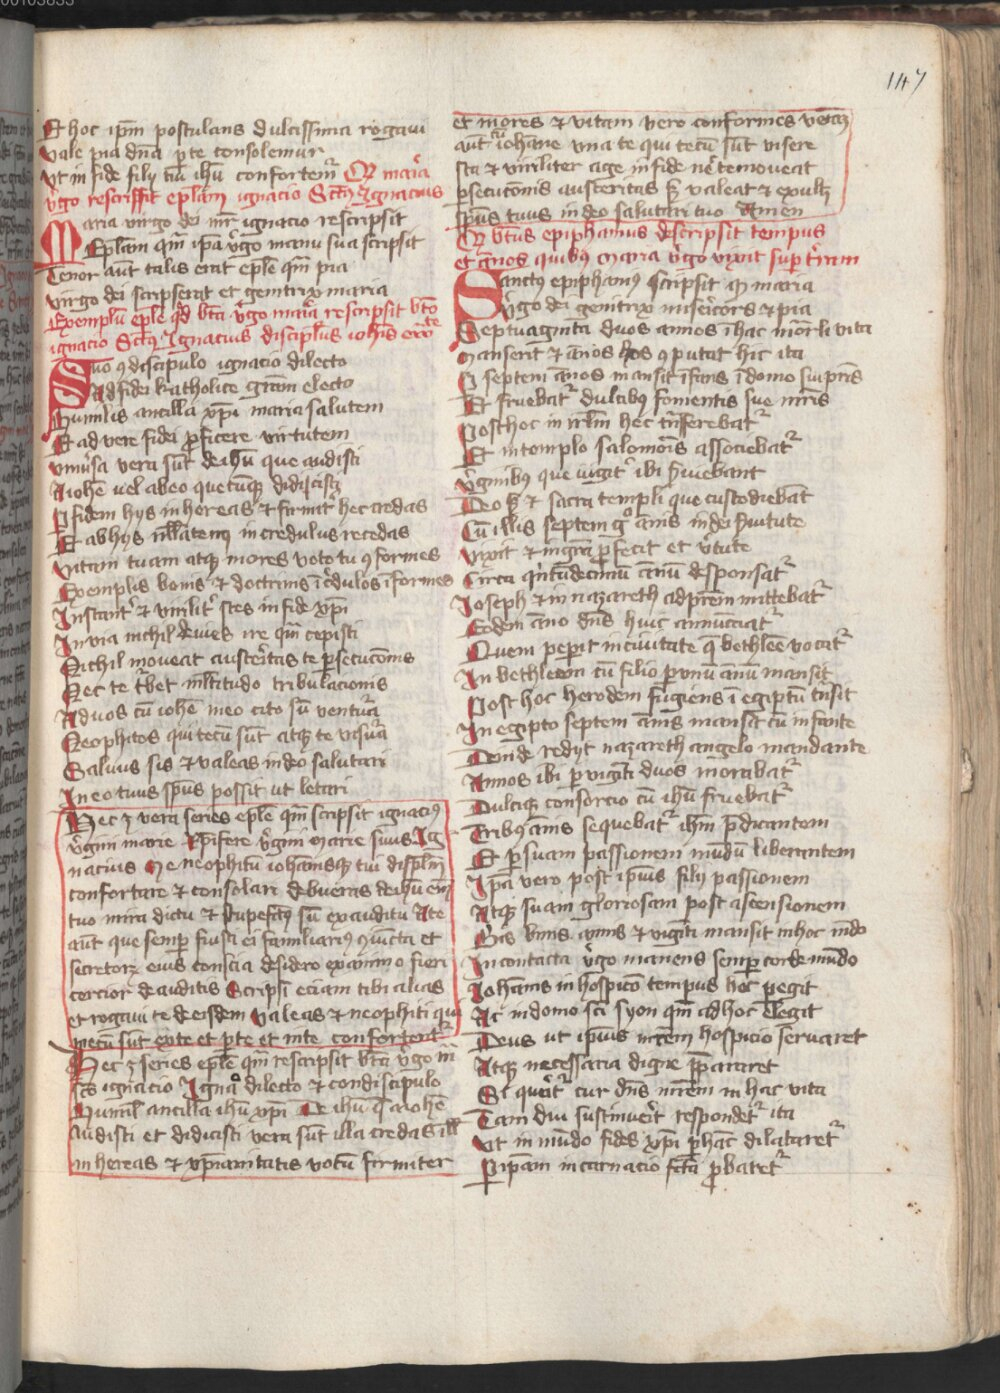 147
Et hoc ipm postulans dulcissima rogavi
Vale pia dna p te consolemur
Ut in fide filij tui ihu confortemr Q maria
vgo rescripsit eplam ignacio Sctus Ignacius
Maria virgo dei mr ignacio rescripsit
Eplam qm ipa vgo manu sua scripsit
Tenor aut talis erat eple qm pia
virgo dei scripserat et genitrix maria
Exemplu eple qd bta vgo maria rescripsit bto
ignacio Sctus Ignacius discipulus iohis
Suo 9discipulo ignacio dilecto
Ad fidei katholice gram electo
Humilis ancilla xpi maria salutem
Et ad vere fidei proficere virtutem
Univsa vera sut de ihu que audisti
A iohe vel ab eo quecumq didicisti
Et ab hys nllatenus incredulus recedas
Vitam tuam atq mores voto tu 9formes
Exemplis bonis et doctrinis icdulos iformes
Instant et virilit stes in fide xpi
In via nichil devies ire qm cepisti
Nichil moveat austeritas te psecucomis
Nec te tbet mltitudo tribulacionis
Ad vos cu iohe meo cito su ventura
Neophitos qui tecu sut atq te visura
Salvus sis et valeas in deo salutari
In eo tuus spus possit ut letari
Hec 3 vera series eple qm scripsit ignacius
vgini marie Xpifere vgini marie suus Ig
nacius Me neophitu iohanisq tui discplm
confortare et consolari debueras de ihu em
tuo mira dictu et stupefactus su ex auditu A te
aut que semp fuisti ei familiarius 9iuncta et
secretorz eius conscia desidero ex animo fieri
cercior de auditis Scripsi eciam tibi alias
et rogavi te de eisdem Valeas et neophiti qui
mecu sut ex te et p te et in te confortent
Hec 3 series eple qm rescripsit bta vgo m
sco ignacio Ignao dilecto et condiscipulo
Humil ancilla ihu xpi De ihu q a iohe
audisti et didicisti vera sut illa credas ill
inhereas et xpianitatis votu firmiter
et mores et vitam vero conformes veniam
aut cu iohane una te qui tecu sut visere
sta et viriliter age in fide nec te moveat
psecutomis austeritas S valeat et exult
spus tuus in deo salutari tuo Amen
Q btus epiphanius descripsit tempus
et annos quibus maria vgo vixit sup terram
Sanctus epiphanius scripsit q maria
Vgo dei genitrix misericors et pia
Septuaginta duos annos i hac morti vita
Manserit et anos hos 9putat hic ita
Q septem anos mansit ifans i domo sui pris
Et fruebat dulcibus fomentis sue mris
Post hoc in irlm hec tnsferebat
Et in templo salomonis associebat
Vginibus que iugit ibi sviebant
Deo S et sacra templi que custodiebat
Cu illis septem go anis in dei svitute
vixit et in gra profecit et vtute
Circa qntudecimu annu desponsat
Joseph et in nazareth ad prem mittebat
Eodem anno dns huic annunciat
Quem peperit in civitate q bethlee vocat
In bethleem cu filio p unu annu mansit
Post hoc herodem fugiens i egiptu tnsit
In egipto septem anis mansit cu infante
Deinde redyt nazareth angelo mandante
Annos ibi p viginti duos morabat
Dulciq consorcio cu ihu fruebat
Tribus annis sequebat ihm predicantem
Et p suam passionem mudu liberantem
Ipa vero post ipius filij passionem
Atq suam gloriosam post ascensionem
Bis binis annis et viginti mansit in hoc mudo
Intacta vgo manens semp corde mundo
Johannis in hospicio tempus hoc pegit
Ac in domo sci syon qm ad hoc elegit
Deus ut ipius mrem hospicio servaret
Atq necessaria digne ppararet
Si querit cur dns mrem in hac vita
Tam diu sustinuerit respondet ita
Ut in mundo fides xpi p hac dilataret
P ipam incarnacio scta probaret